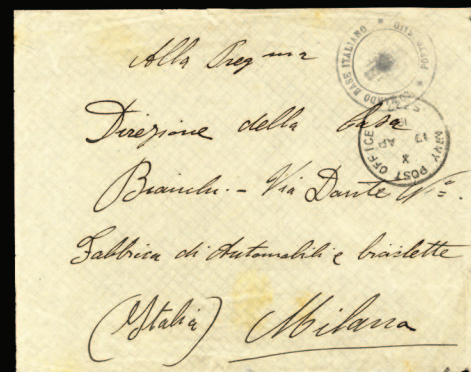 Alla Preg ma
Direzione della Casa
Bianchi. - Via Dante N=o.
Fabbrica di Automobili e biciclette
(Italia) Milano
COMANDO BASE ITALIANO * PORTO SAID *
ARMY POST OFFICE
X
17
AP